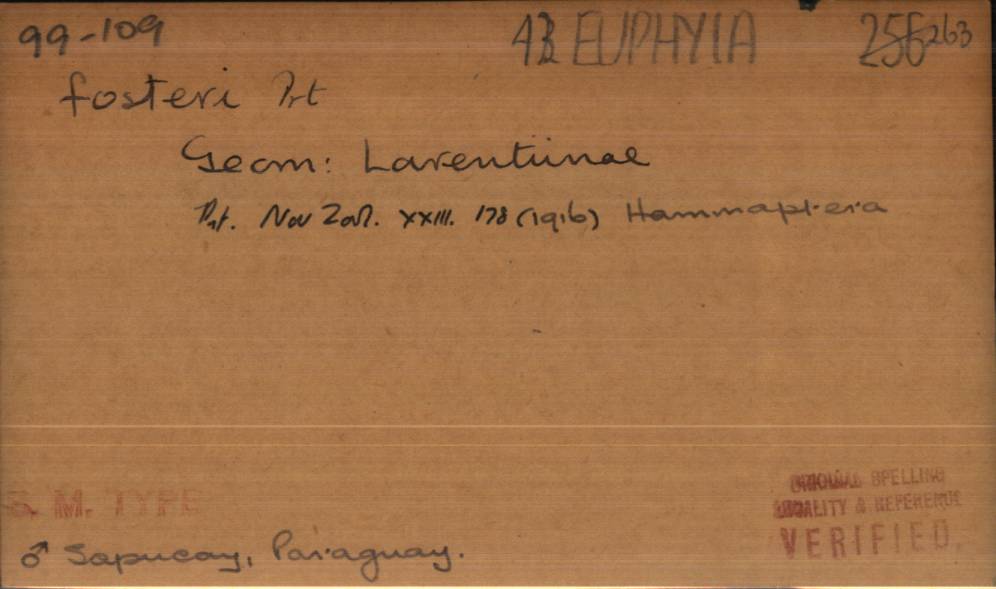 99-109 43 EUPHYIA 256 263
fosteri Prt
Geom: Larentiinae
Prt. Nov Zool. XXIII. 178 (1916) Hammaptera
B. M. TYPE
ORIGINAL SPELLING
LOCALITY & REFERENCE
VERIFIED.
♂ Sapucay, Paraguay.